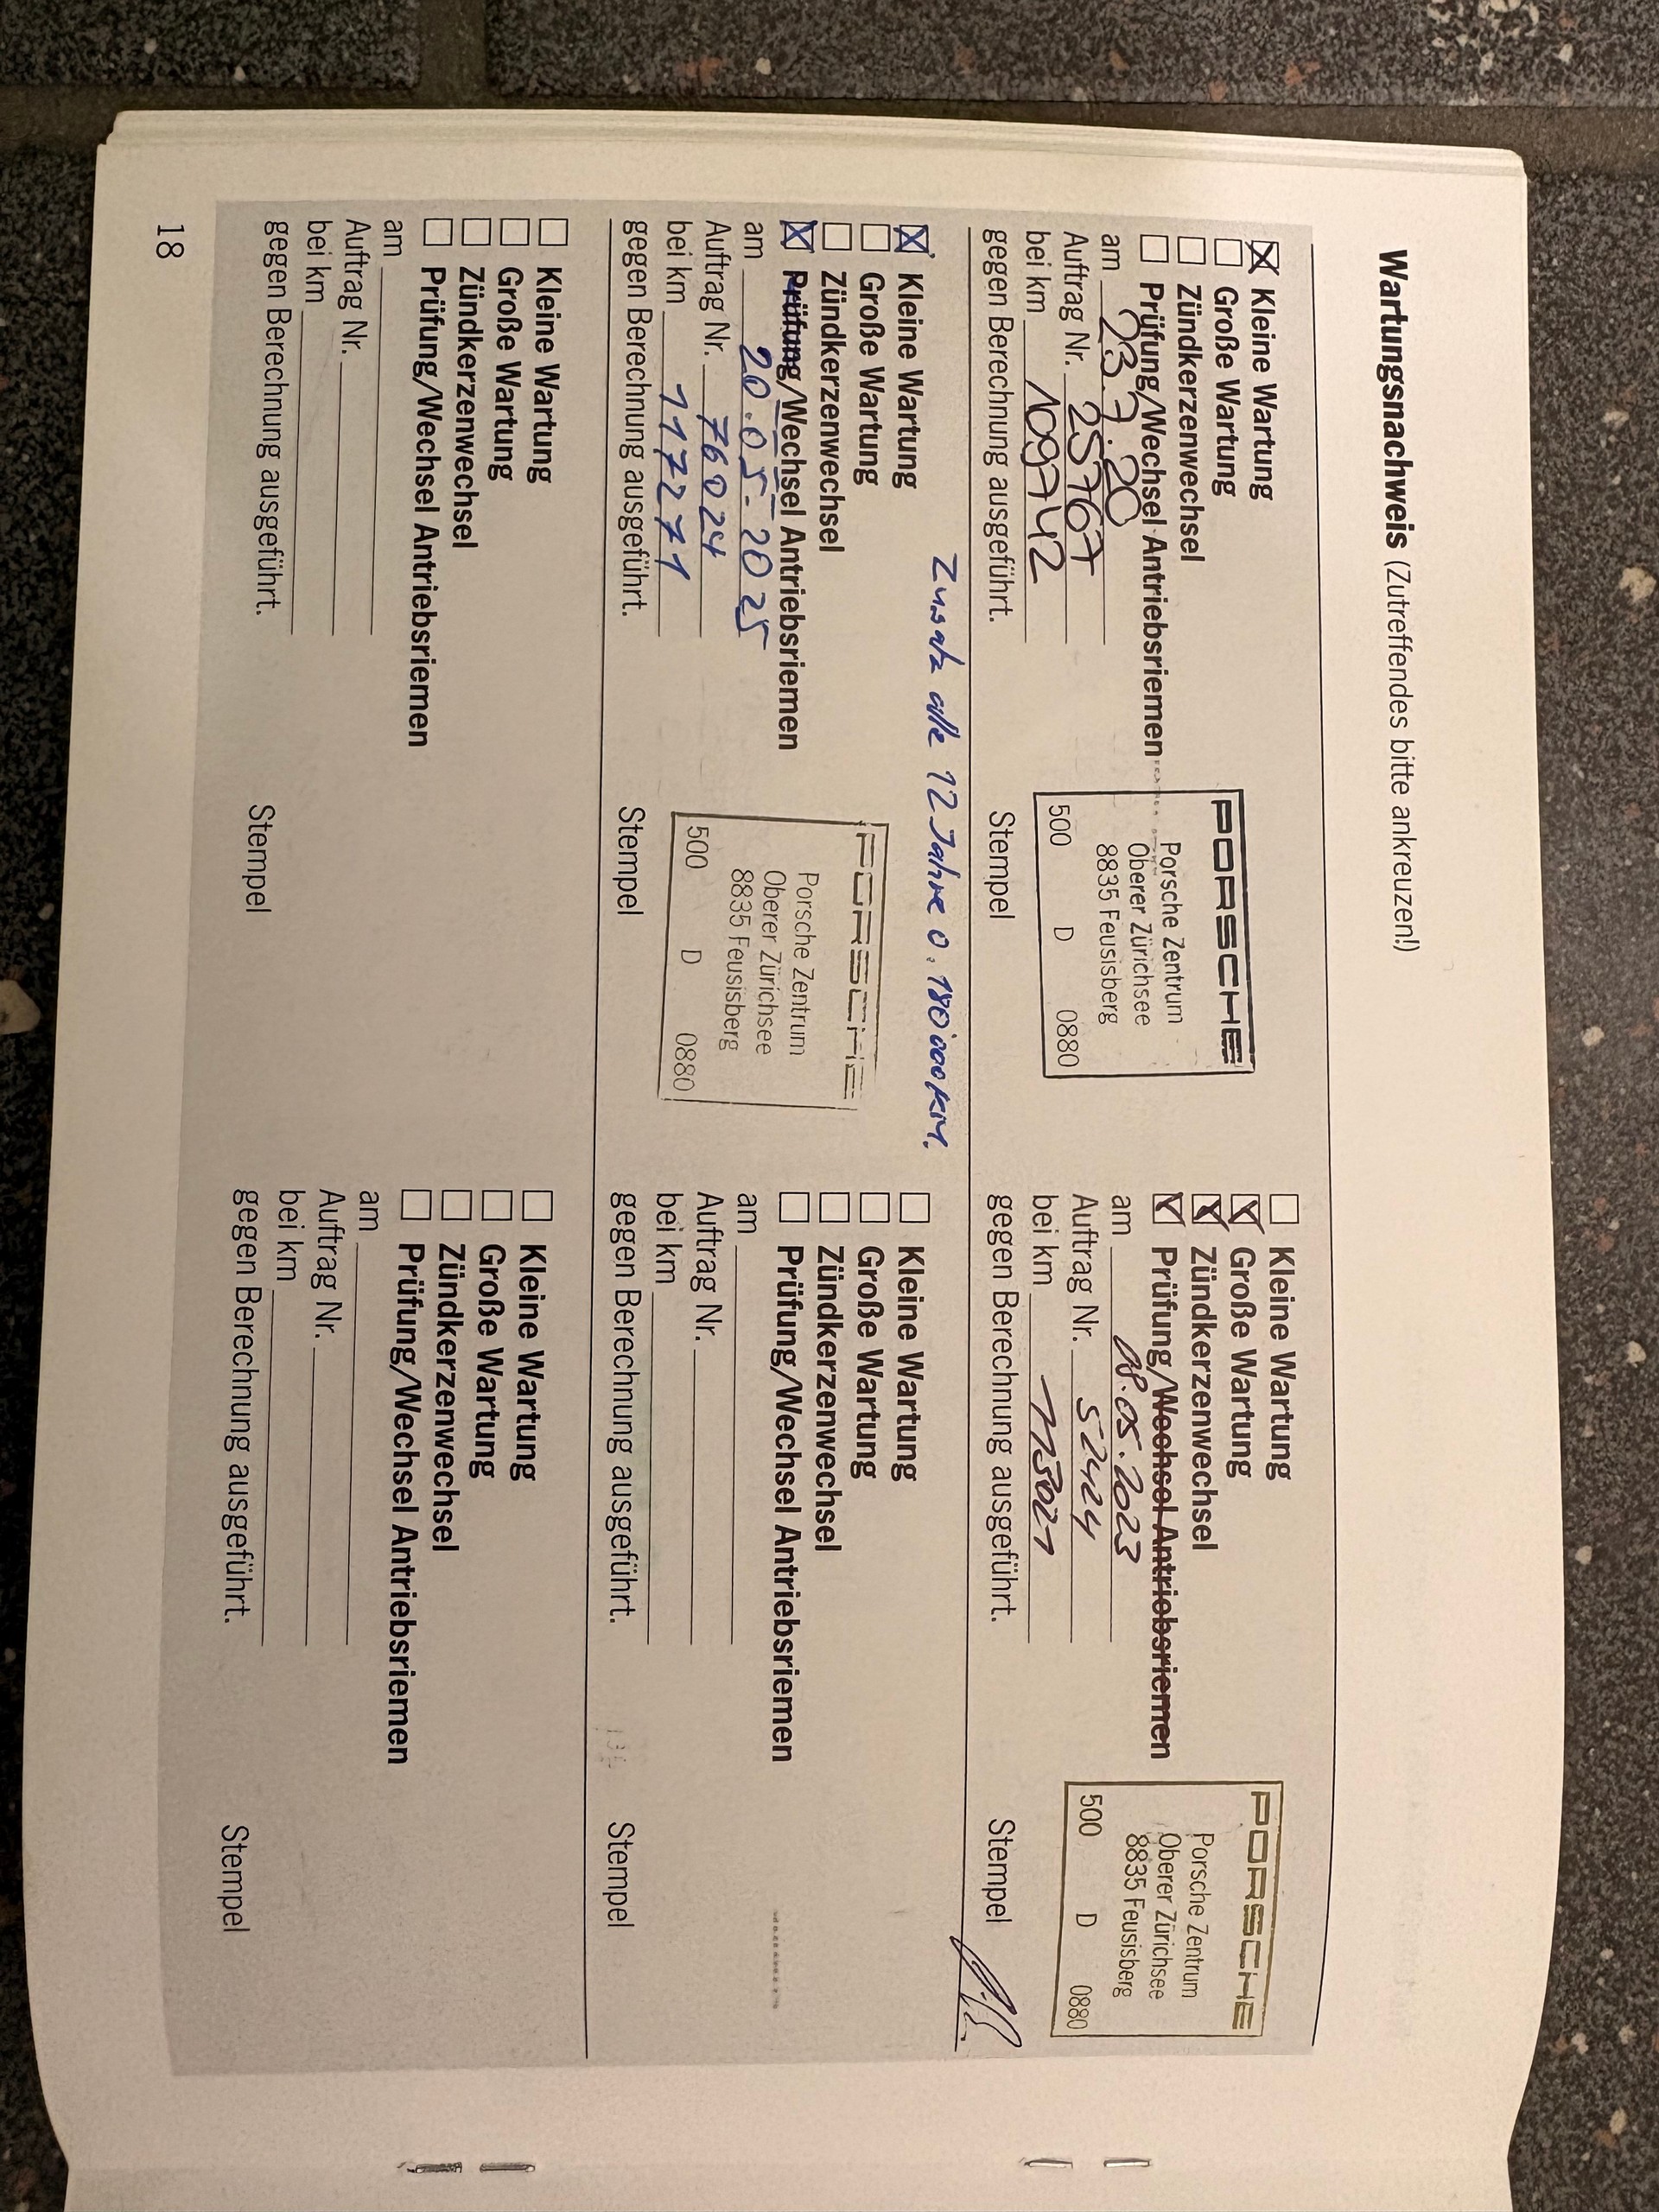 Wartungsnachweis (Zutreffendes bitte ankreuzen!)
Kleine Wartung
Große Wartung
Zündkerzenwechsel
Prüfung/Wechsel Antriebsriemen
am 23.7.20
Auftrag Nr. 25767
bei km 109742
gegen Berechnung ausgeführt.
PORSCHE
Porsche Zentrum
Oberer Zürichsee
8835 Feusisberg
500 D 0880
Stempel
Kleine Wartung
Große Wartung
Zündkerzenwechsel
Prüfung/Wechsel Antriebsriemen
am 08.05.2023
Auftrag Nr. 52424
bei km 113021
gegen Berechnung ausgeführt.
PORSCHE
Porsche Zentrum
Oberer Zürichsee
8835 Feusisberg
500 D 0880
Stempel
Zusatz alle 12 Jahre o. 180'000 KM.
Kleine Wartung
Große Wartung
Zündkerzenwechsel
Prüfung/Wechsel Antriebsriemen
am 20.05.2025
Auftrag Nr. 76024
bei km 117271
gegen Berechnung ausgeführt.
PORSCHE
Porsche Zentrum
Oberer Zürichsee
8835 Feusisberg
500 D 0880
Stempel
Kleine Wartung
Große Wartung
Zündkerzenwechsel
Prüfung/Wechsel Antriebsriemen
am
Auftrag Nr.
bei km
gegen Berechnung ausgeführt.
Stempel
Kleine Wartung
Große Wartung
Zündkerzenwechsel
Prüfung/Wechsel Antriebsriemen
am
Auftrag Nr.
bei km
gegen Berechnung ausgeführt.
Stempel
Kleine Wartung
Große Wartung
Zündkerzenwechsel
Prüfung/Wechsel Antriebsriemen
am
Auftrag Nr.
bei km
gegen Berechnung ausgeführt.
Stempel
18